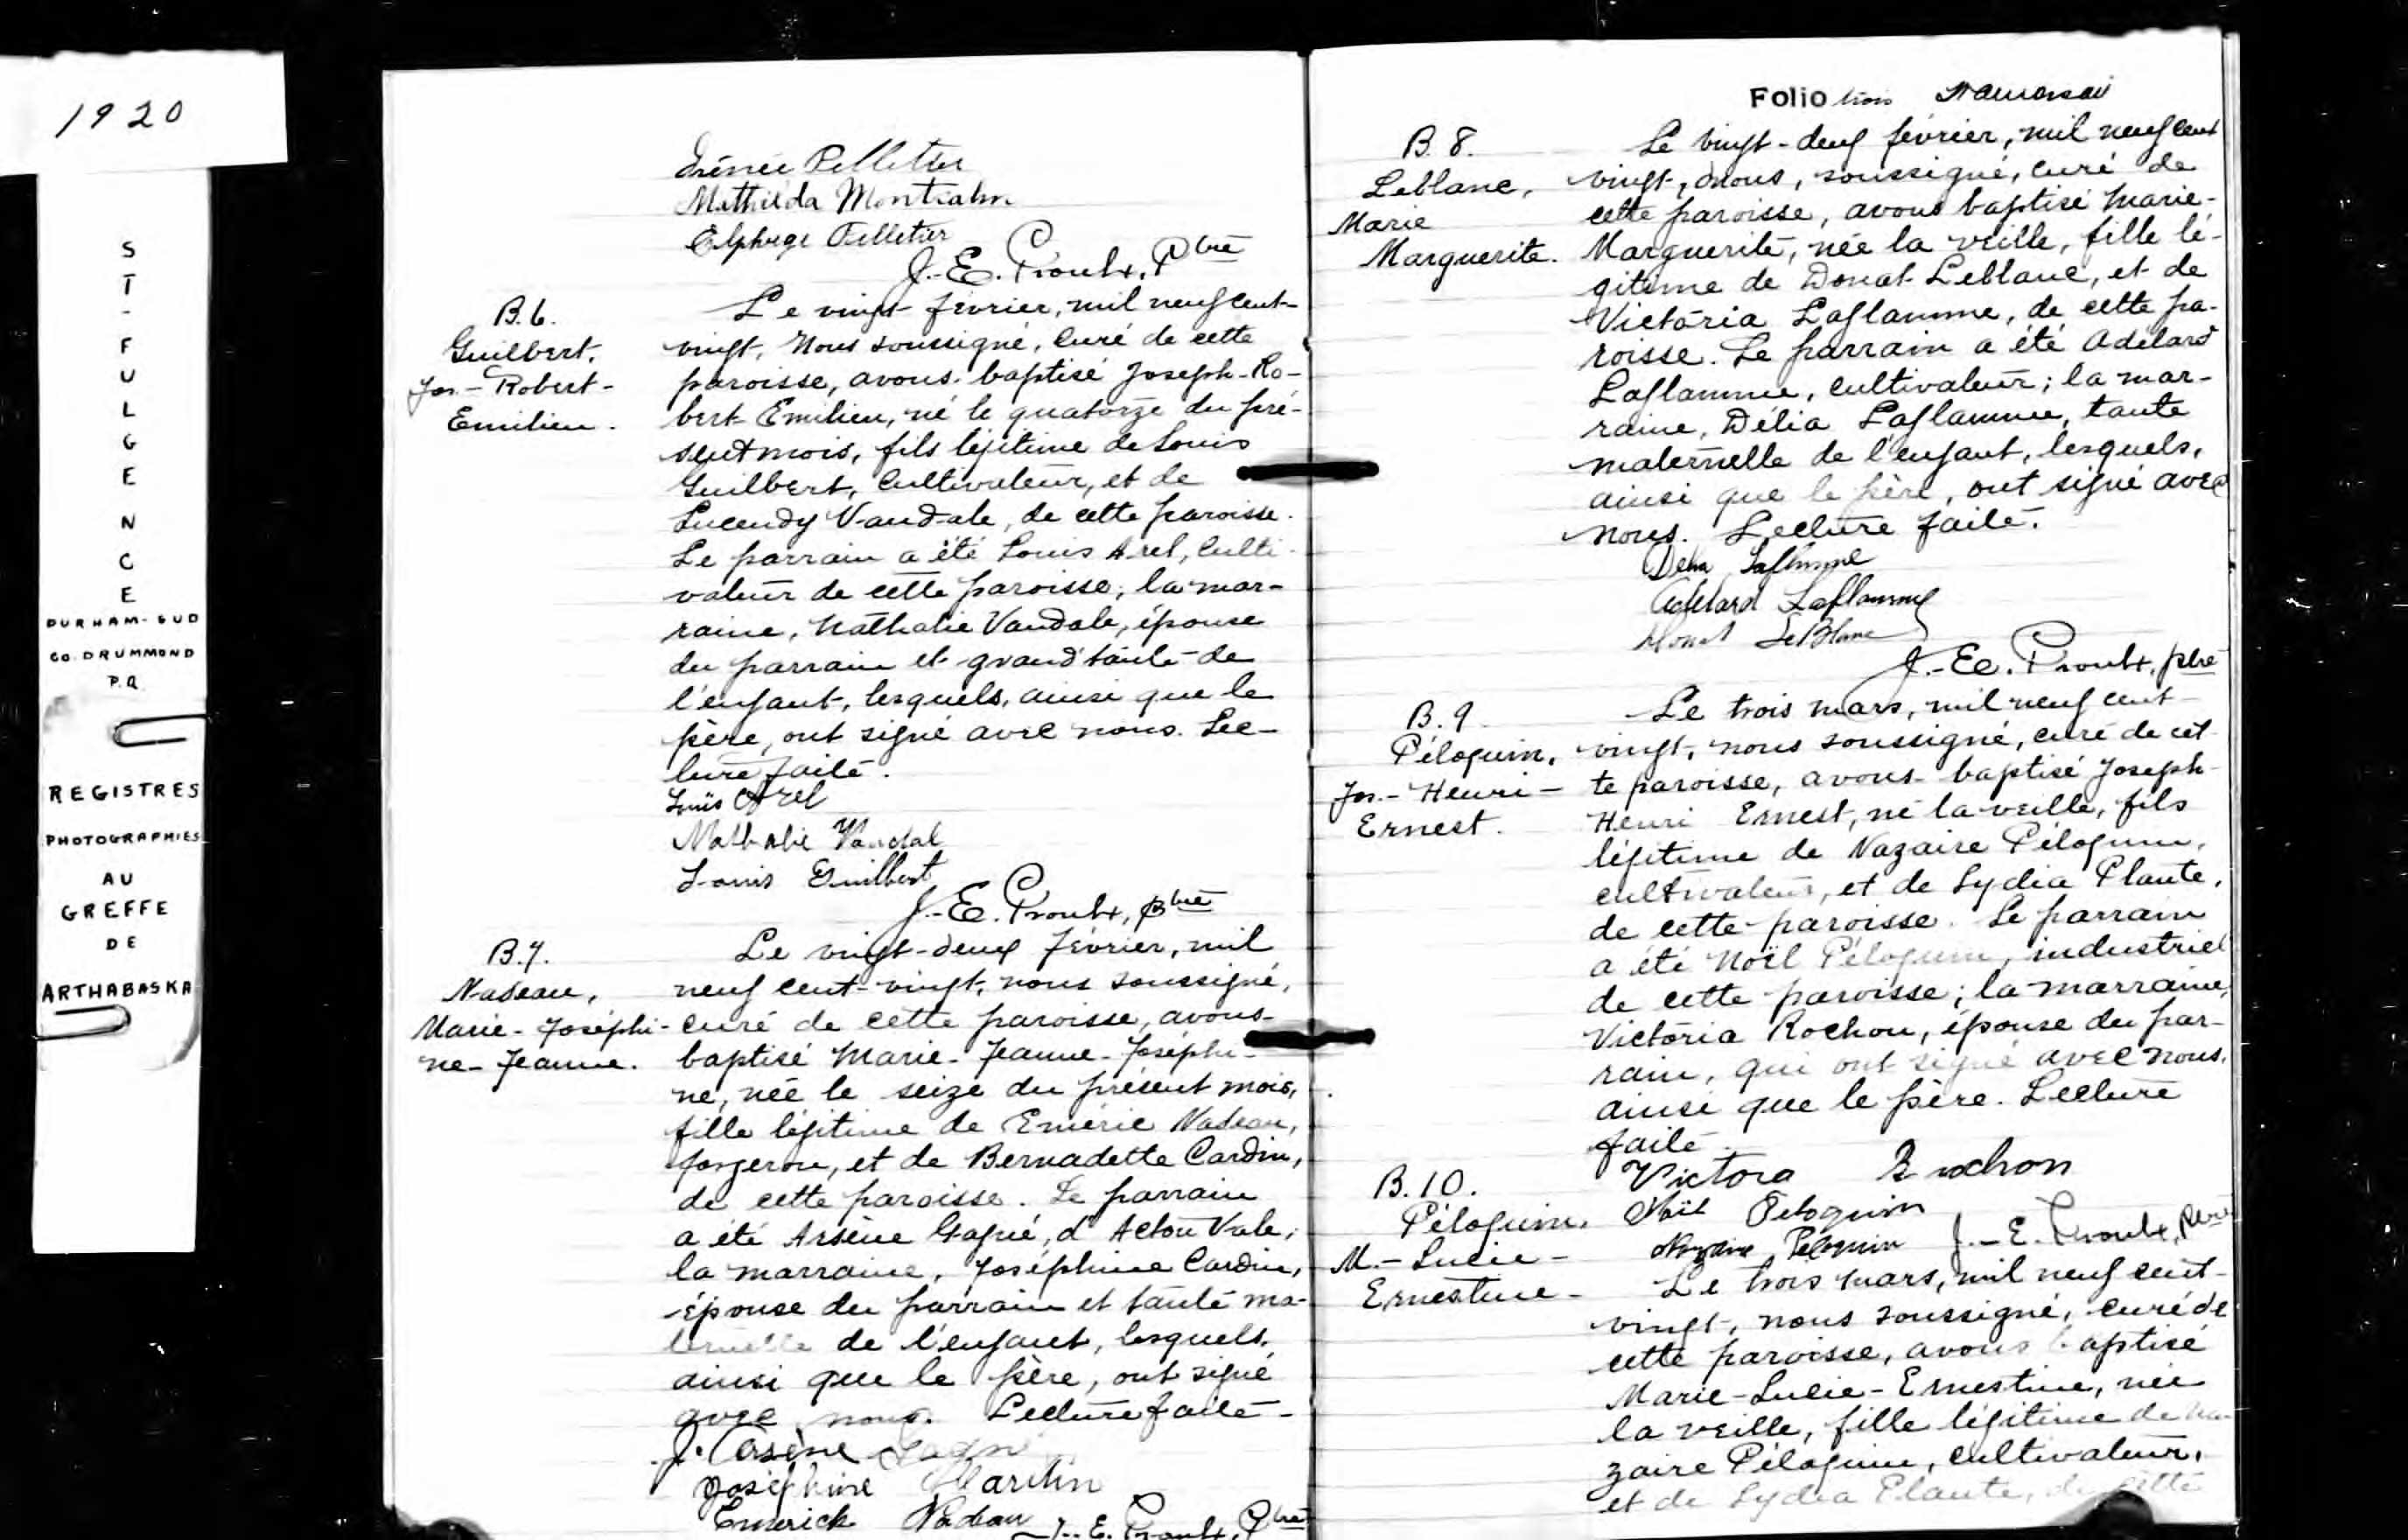 1920
S
T
-
F
U
L
G
E
N
C
E
DURHAM-SUD
CO. DRUMMOND
P.Q.
REGISTRES
PHOTOGRAPHIES
AU
GREFFE
DE
ARTHABASKA
Irénée Pelletier
Mathilda Montcalm
Elphege Pelletier
J.-E. Proulx, Ptre
B.6.
Guilbert,
Jos.-Robert-
Emilien.
Le vingt février, mil neuf cent-
vingt, Nous soussigné, curé de cette
paroisse, avons baptisé Joseph-Ro-
bert-Emilien, né le quatorze du pré-
sent mois, fils légitime de Louis
Guilbert, cultivateur, et de
Lucendy Vandale, de cette paroisse.
Le parrain a été Louis Arel, culti-
vateur de cette paroisse; la mar-
raine, Nathalie Vandale, épouse
du parrain et grand'tante de
l'enfant, lesquels, ainsi que le
père, ont signé avec nous. Lec-
ture faite.
Louis Arel
Nathalie Vandal
Louis Guilbert
J.-E. Proulx, Ptre
B.7.
Nadeau,
Marie-Joséphi-
ne-Jeanne.
Le vingt-deux février, mil
neuf cent-vingt, nous soussigné,
curé de cette paroisse, avons
baptisé Marie-Jeanne-Joséphi-
ne, née le seize du présent mois,
fille légitime de Emérie Nadeau,
forgeron, et de Bernadette Cardin,
de cette paroisse. Le parrain
a été Arsène Gagné, d'Acton Vale;
la marraine, Joséphine Cardin,
épouse du parrain et tante ma-
ternelle de l'enfant, lesquels,
ainsi que le père, ont signé
avec nous. Lecture faite-
J. Arsène Gagné
Joséphine Cardin
Emerick Nadeau
J.-E. Proulx, Ptre
Folio trois
B.8.
Leblanc,
Marie
Marguerite.
Le vingt-deux février, mil neuf cent
vingt, nous, soussigné, curé de
cette paroisse, avons baptisé Marie-
Marguerite, née la veille, fille lé-
gitime de Donat Leblanc, et de
Victoria Laflamme, de cette pa-
roisse. Le parrain a été Adélard
Laflamme, cultivateur; la mar-
raine, Délia Laflamme, tante
maternelle de l'enfant, lesquels,
ainsi que le père, ont signé avec
nous. Lecture faite.
Delia Laflamme
Adelard Laflamme
Donat LeBlanc
J.-E. Proulx, ptre
B.9.
Péloquin,
Jos.-Henri-
Ernest.
Le trois mars, mil neuf cent
vingt, nous soussigné, curé de cet-
te paroisse, avons baptisé Joseph-
Henri Ernest, né la veille, fils
légitime de Nazaire Péloquin,
cultivateur, et de Lydia Plante,
de cette paroisse. Le parrain
a été Noël Péloquin, industriel
de cette paroisse; la marraine,
Victoria Rochon, épouse du par-
rain, qui ont signé avec nous,
ainsi que le père. Lecture
faite.
Victora Rochon
Noël Peloquin
Nazaire Peloquin
J.-E. Proulx, Ptre
B.10.
Péloquin,
M.-Lucie-
Ernestine-
Le trois mars, mil neuf cent-
vingt, nous soussigné, curé de
cette paroisse, avons baptisé
Marie-Lucie-Ernestine, née
la veille, fille légitime de Na-
zaire Péloquin, cultivateur,
et de Lydia Plante, de cette